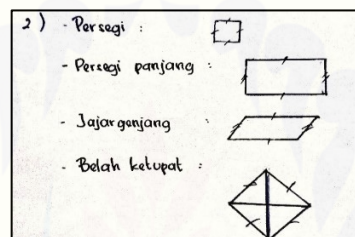 2) - Persegi :
- Persegi panjang :
- Jajargenjang :
- Belah ketupat :